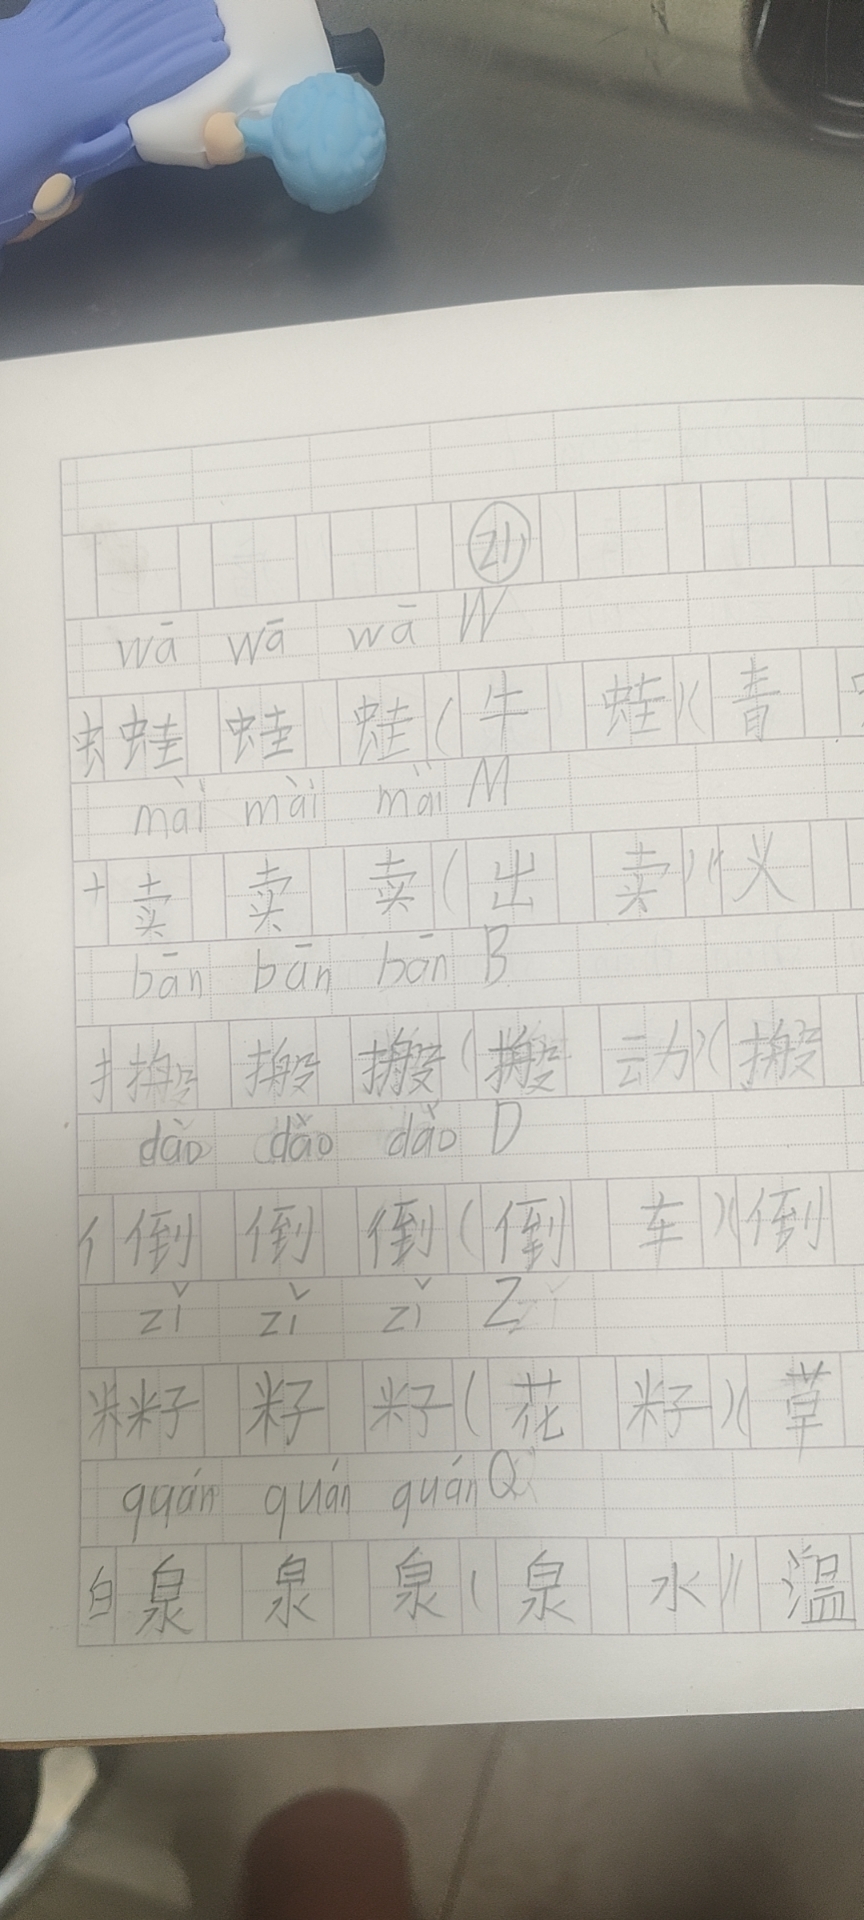 21
wā wā wā W
虫 蛙 蛙 蛙 ( 牛 蛙 ) ( 青
mài mài mài M
十 卖 卖 卖 ( 出 卖 ) ( 义
bān bān bān B
扌 搬 搬 搬 ( 搬 动 ) ( 搬
dǎo dǎo dǎo D
亻 倒 倒 倒 ( 倒 车 ) ( 倒
zǐ zǐ zǐ Z
米 籽 籽 籽 ( 花 籽 ) ( 草
quán quán quán Q
白 泉 泉 泉 ( 泉 水 ) ( 温